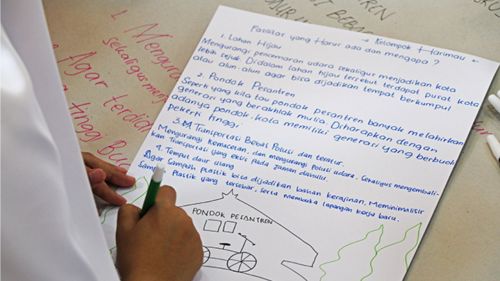 Fasilitas yang Harus ada dan mengapa?
→ Kelompok Harimau ←
1. Lahan Hijau
Mengurangi pencemaran udara sekaligus menjadikan kota
lebih sejuk. Didalam lahan hijau tersebut terdapat pusat kota
atau alun-alun agar bisa dijadikan tempat berkumpul
2. Pondok Pesantren
Seperti yang kita tau pondok pesantren banyak melahirkan
generasi yang berakhlak mulia. Diharapkan dengan
adanya pondok kota memiliki generasi yang berbudi
pekerti tinggi.
3. Transportasi Bebas Polusi dan teratur.
Mengurangi kemacetan dan mengurangi polusi udara. Sekaligus mengembali-
kan Transportasi yang eksis pada zaman dahulu.
4. Tempat daur ulang
Agar Sampah plastik bisa dijadikan bahan kerajinan, Meminimalisir
Sampah Plastik yang tersebar, serta membuka lapangan kerja baru.
PONDOK PESANTREN
1. Mengura
sekaligus
Agar terdi
tinggi
BEBA